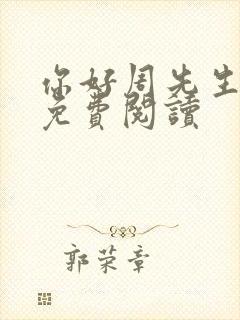 你好周先生
免費閱讀
郭荣章